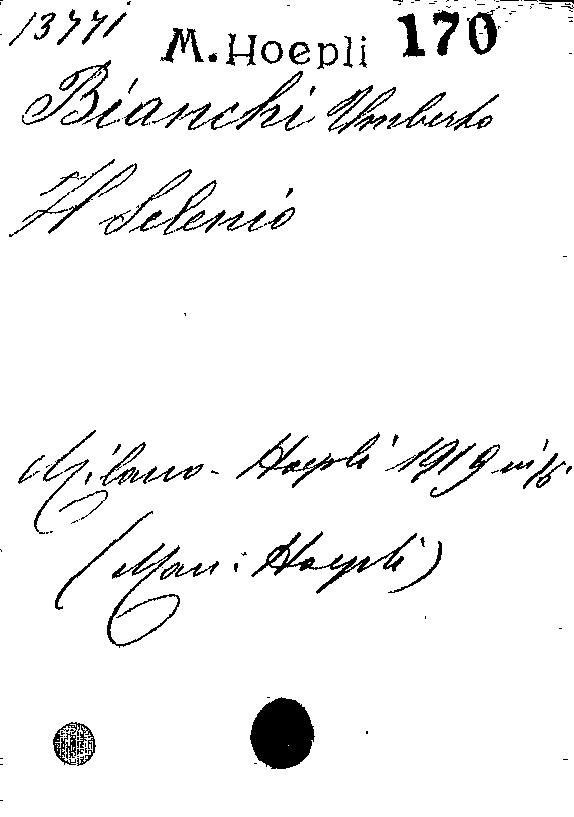 13771 M. Hoepli 170
Bianchi Umberto
Il Selenio
Milano - Hoepli 1919 in 16.
(Man: Hoepli)